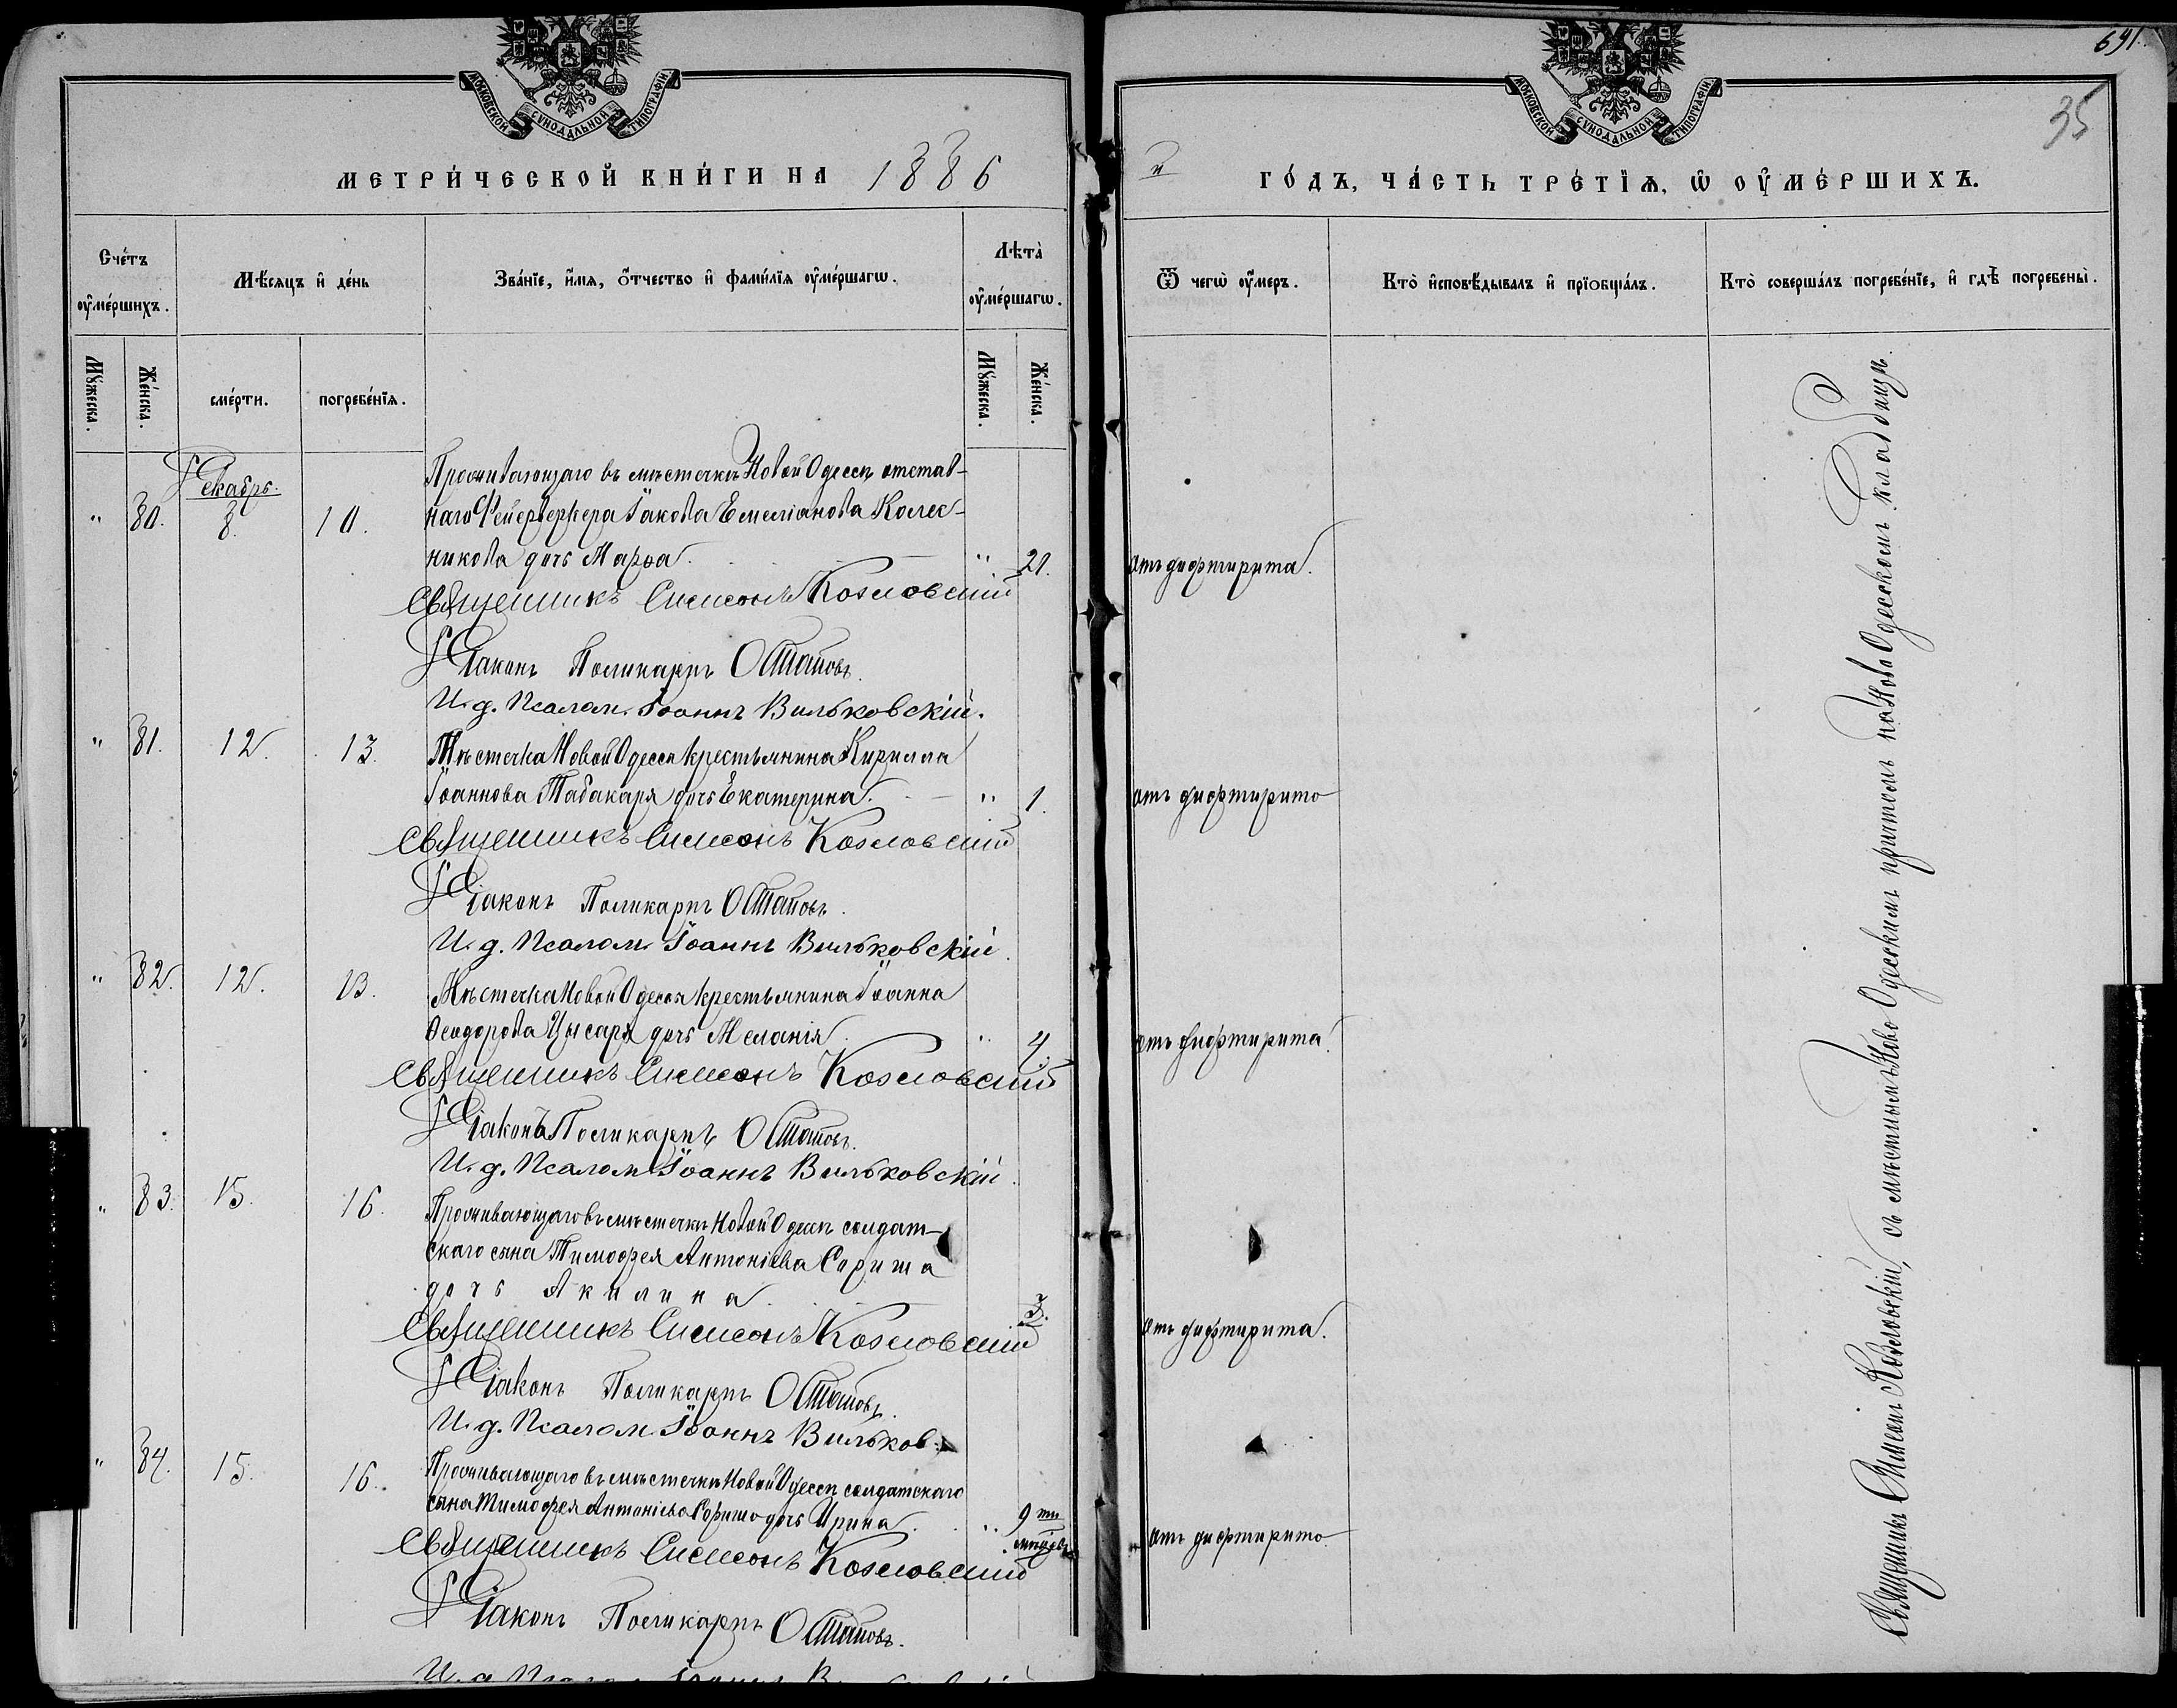 МОСКОВСКОЙ СѴНОДАЛЬНОЙ ТИПОГРАФІИ
МЕТРИ́ЧЕСКОЙ КНИ́ГИ НА 1886
Сче́тъ оу҆ме́ршихъ.
Мѣ́сяцъ и҆ де́нь
Зва́нїе, и҆́мя, ѻ҆́тчество и҆ фами́лїя оу҆ме́ршагѡ.
Лѣта̀ оу҆ме́ршагѡ.
Мꙋ́жеска.
Же́нска.
сме́рти.
погребе́нїя.
Мꙋ́жеска.
Же́нска.
Декабрь.
Проживающаго въ мѣстечкѣ Новой Одессѣ отстав-
" 80. 8. 10. наго Фейерверкера Іакова Емеліанова Колес-
никова дочь Марѳа. " 21.
Священникъ Симеонъ Козловскій
Діаконъ Поликарпъ Остаповъ.
И. д. Псалом. Іоаннъ Вильковскій.
" 81. 12. 13. Мѣстечка Новой Одессы крестьянина Кирилла
Іоаннова Табакаря дочь Екатерина. " 1.
Священникъ Симеонъ Козловскій
Діаконъ Поликарпъ Остаповъ.
И. д. Псалом. Іоаннъ Вильковскій.
" 82. 12. 13. Мѣстечка Новой Одессы крестьянина Іоанна
Ѳеодорова Цысаря дочь Меланія. " 4.
Священникъ Симеонъ Козловскій
Діаконъ Поликарпъ Остаповъ.
И. д. Псалом. Іоаннъ Вильковскій.
" 83. 15. 16. Проживающаго въ мѣстечкѣ Новой Одессѣ солдат-
скаго сына Тимоѳея Антоніева
дочь Акилина. 3.
Священникъ Симеонъ Козловскій
Діаконъ Поликарпъ Остаповъ.
И. д. Псалом. Іоаннъ Вильков.
" 84. 15. 16. Проживающаго въ мѣстечкѣ Новой Одессѣ солдатскаго
сына Тимоѳея Антоніева дочь Ирина. " 9 ти
Священникъ Симеонъ Козловскій
Діаконъ Поликарпъ Остаповъ.
691.
35
МОСКОВСКОЙ СѴНОДАЛЬНОЙ ТИПОГРАФІИ
й ГО́ДЪ, ЧА́СТЬ ТРЕ́ТЇѦ, Ѡ҆ ОУ҆МЕ́РШИХЪ.
Ѿ чегѡ̀ оу҆́меръ.
Кто̀ и҆сповѣ́дывалъ и҆ прїобща́лъ.
Кто̀ соверша́лъ погребе́нїе, и҆ гдѣ̀ погребены̀.
отъ дифтирита.
отъ дифтирита
отъ дифтирита.
отъ дифтирита.
отъ дифтирита
Священникъ Симеонъ Козловскій, съ мѣстнымъ Ново Одесскимъ причтомъ на Ново Одесскомъ кладбищѣ.